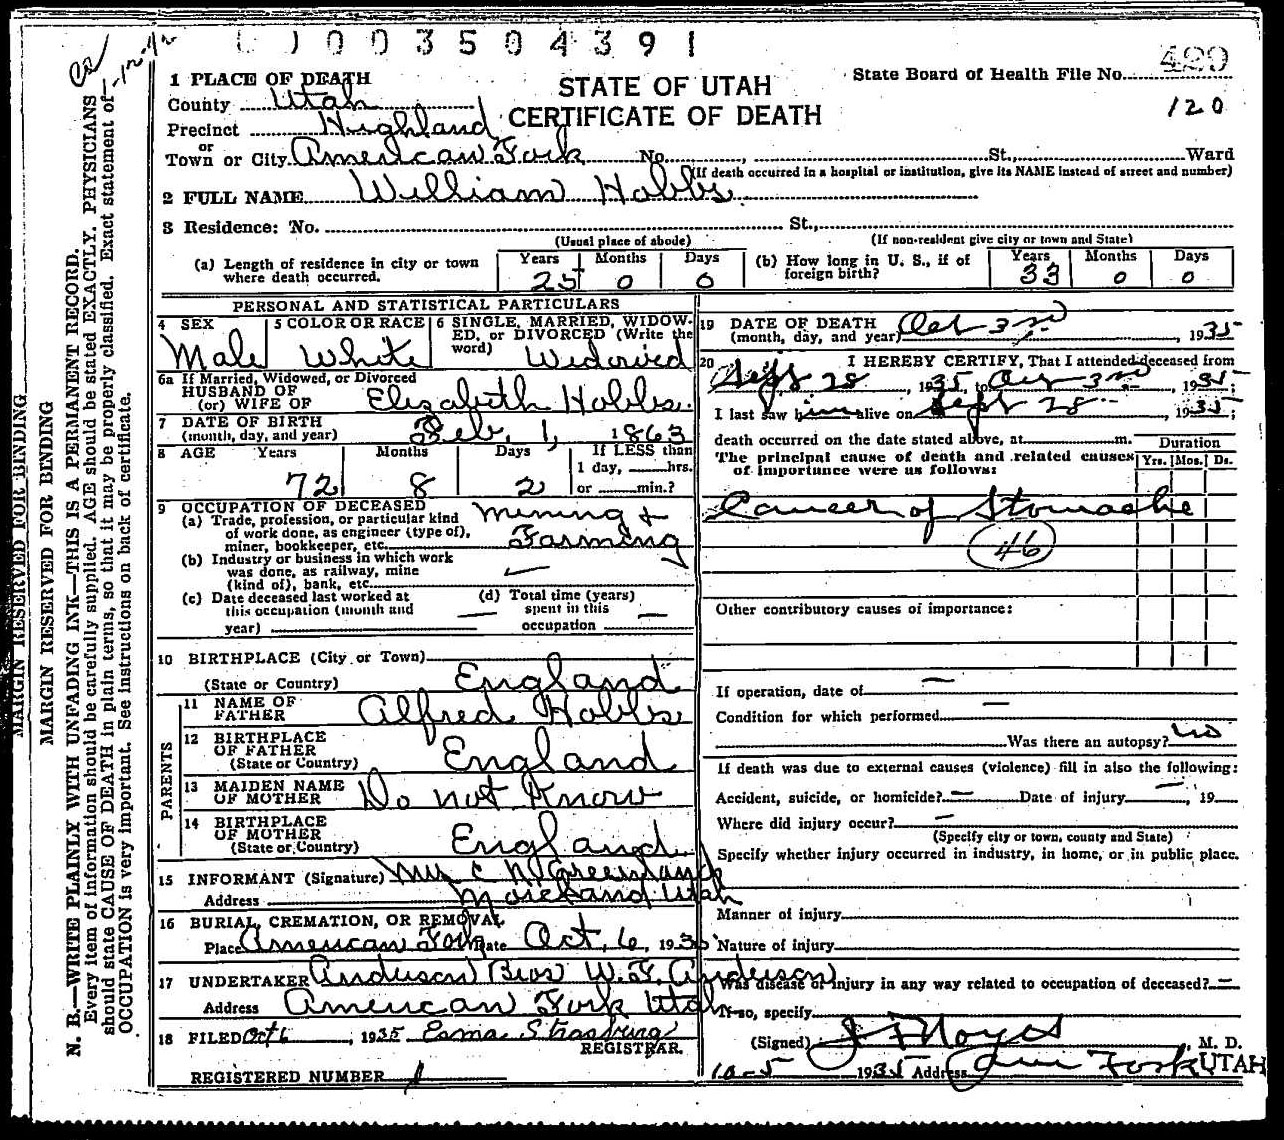 0 0 3 5 0 4 3 9 1
STATE OF UTAH
CERTIFICATE OF DEATH
State Board of Health File No. 429
120
1 PLACE OF DEATH
County Utah
Precinct Highland
or
Town or City American Fork No. , St., Ward
(If death occurred in a hospital or institution, give its NAME instead of street and number)
2 FULL NAME William Hobbs
3 Residence: No. St.,
(Usual place of abode) (If non-resident give city or town and State)
(a) Length of residence in city or town where death occurred. Years 25 Months 0 Days 0
(b) How long in U. S., if of foreign birth? Years 33 Months 0 Days 0
PERSONAL AND STATISTICAL PARTICULARS
4 SEX Male
5 COLOR OR RACE White
6 SINGLE, MARRIED, WIDOWED, or DIVORCED (Write the word) Widowed
6a If Married, Widowed, or Divorced
HUSBAND OF
(or) WIFE OF Elizabeth Hobbs
7 DATE OF BIRTH
(month, day, and year) Feb. 1, 1863
8 AGE Years 72 Months 8 Days 2
If LESS than
1 day, hrs.
or min.?
9 OCCUPATION OF DECEASED
(a) Trade, profession, or particular kind
of work done, as engineer (type of),
miner, bookkeeper, etc. Mining & Farming
(b) Industry or business in which work
was done, as railway, mine
(kind of), bank, etc.
(c) Date deceased last worked at
this occupation (month and
year)
(d) Total time (years)
spent in this
occupation
10 BIRTHPLACE (City or Town)
(State or Country) England
PARENTS
11 NAME OF FATHER Alfred Hobbs
12 BIRTHPLACE OF FATHER
(State or Country) England
13 MAIDEN NAME OF MOTHER Do not Know
14 BIRTHPLACE OF MOTHER
(State or Country) England
15 INFORMANT (Signature) Greenland
Address Utah
16 BURIAL, CREMATION, OR REMOVAL
Place American Fork Date Oct. 6, 1935
17 UNDERTAKER Anderson Bros W. F. Anderson
Address American Fork Utah
18 FILED Oct 6, 1935
REGISTRAR.
REGISTERED NUMBER 1
19 DATE OF DEATH
(month, day, and year) Oct 3rd, 1935
20 I HEREBY CERTIFY, That I attended deceased from
Sept 28, 1935 to Oct 3rd, 1935;
I last saw him alive on Sept 28, 1935;
death occurred on the date stated above, at m.
The principal cause of death and related causes
of importance were as follows:
Duration
Yrs. Mos. Ds.
Cancer of Stomache
46
Other contributory causes of importance:
If operation, date of
Condition for which performed
Was there an autopsy? No
If death was due to external causes (violence) fill in also the following:
Accident, suicide, or homicide? Date of injury , 19
Where did injury occur?
(Specify city or town, county and State)
Specify whether injury occurred in industry, in home, or in public place.
Manner of injury
Nature of injury
Was disease or injury in any way related to occupation of deceased?
If so, specify
(Signed) , M. D.
10-5 1935 Address Am Fork UTAH
MARGIN RESERVED FOR BINDING
MARGIN RESERVED FOR BINDING
N. B.—WRITE PLAINLY WITH UNFADING INK—THIS IS A PERMANENT RECORD.
Every item of information should be carefully supplied. AGE should be stated EXACTLY. PHYSICIANS
should state CAUSE OF DEATH in plain terms, so that it may be properly classified. Exact statement of
OCCUPATION is very important. See instructions on back of certificate.